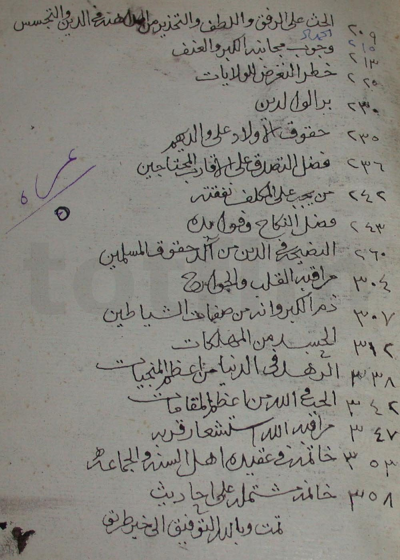 ٢٠٩ الحث على الرفق واللطف والتحذير من المداهنة في الدين والتجسس
٢١٣ وجوب مجانبة الكبر والعنف
٢٢٥ خطر التعرض للولايات
٢٣٠ بر الوالدين
٢٣٥ حقوق الاولاد على والديهم
٢٣٦ فضل التصدق على الاقارب المحتاجين
٢٤٢ من يجب على المكلف نفقته
٢٤٣ فضل النكاح وفوايده
٢٦٠ النصيحة في الدين من آكد حقوق المسلمين
٣٠٤ مراقبة القلب والجوارح
٣٠٧ ذم الكبر وانه من صفات الشياطين
٣١٢ الحسد من المهلكات
٣٣٨ الزهد في الدنيا من اعظم المنجيات
٣٤٢ الحب في الله من اعظم المقامات
٣٤٧ مراقبة الله استشعار قربه
٣٥٣ خاتمة في عقيدة اهل السنة والجماعة
٣٥٨ خاتمة تشتمل على احاديث
تمت وبالله التوفيق الى خير طريق